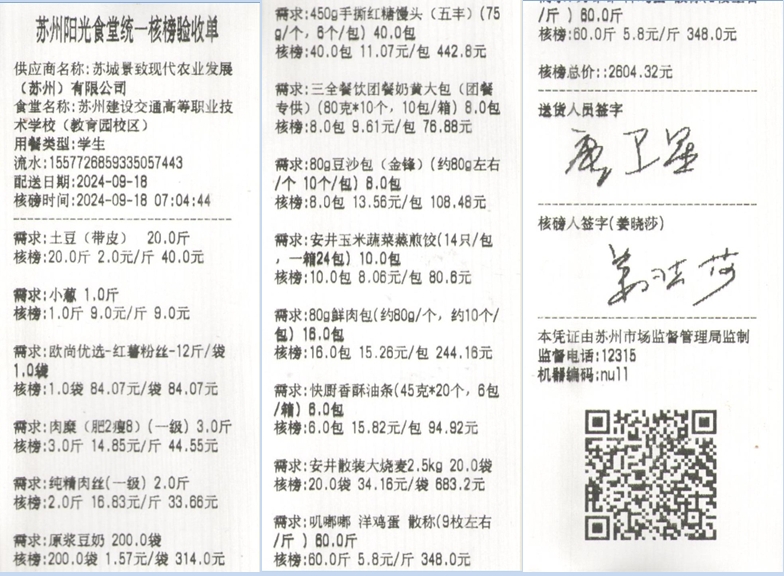 苏州阳光食堂统一核磅验收单
供应商名称:苏城景致现代农业发展
（苏州）有限公司
食堂名称:苏州建设交通高等职业技
术学校（教育园校区）
用餐类型:学生
流水:1557726859335057443
配送日期:2024-09-18
核磅时间:2024-09-18 07:04:44
需求:土豆（带皮） 20.0斤
核榜:20.0斤 2.0元/斤 40.0元
需求:小葱 1.0斤
核榜:1.0斤 9.0元/斤 9.0元
需求:欧尚优选-红薯粉丝-12斤/袋
1.0袋
核榜:1.0袋 84.07元/袋 84.07元
需求:肉糜（肥2瘦8）(一级) 3.0斤
核榜:3.0斤 14.85元/斤 44.55元
需求:纯精肉丝(一级) 2.0斤
核榜:2.0斤 16.83元/斤 33.66元
需求:原浆豆奶 200.0袋
核榜:200.0袋 1.57元/袋 314.0元
需求:450g手撕红糖馒头（五丰）(75
g/个，6个/包) 40.0包
核榜:40.0包 11.07元/包 442.8元
需求:三全餐饮团餐奶黄大包（团餐
专供）(80克*10个，10包/箱) 8.0包
核榜:8.0包 9.61元/包 76.88元
需求:80g豆沙包（金锋）(约80g左右
/个 10个/包) 8.0包
核榜:8.0包 13.56元/包 108.48元
需求:安井玉米蔬菜蒸煎饺(14只/包
，一箱24包) 10.0包
核榜:10.0包 8.06元/包 80.6元
需求:80g鲜肉包(约80g/个，约10个/
包) 16.0包
核榜:16.0包 15.26元/包 244.16元
需求:快厨香酥油条(45克*20个，6包
/箱) 6.0包
核榜:6.0包 15.82元/包 94.92元
需求:安井散装大烧麦2.5kg 20.0袋
核榜:20.0袋 34.16元/袋 683.2元
需求:叽嘟嘟 洋鸡蛋 散称(9枚左右
/斤 ) 60.0斤
核榜:60.0斤 5.8元/斤 348.0元
/斤 ) 60.0斤
核榜:60.0斤 5.8元/斤 348.0元
核榜总价::2604.32元
送货人员签字
唐卫星
核磅人签字(姜晓莎)
姜晓莎
本凭证由苏州市场监督管理局监制
监督电话:12315
机器编码:null